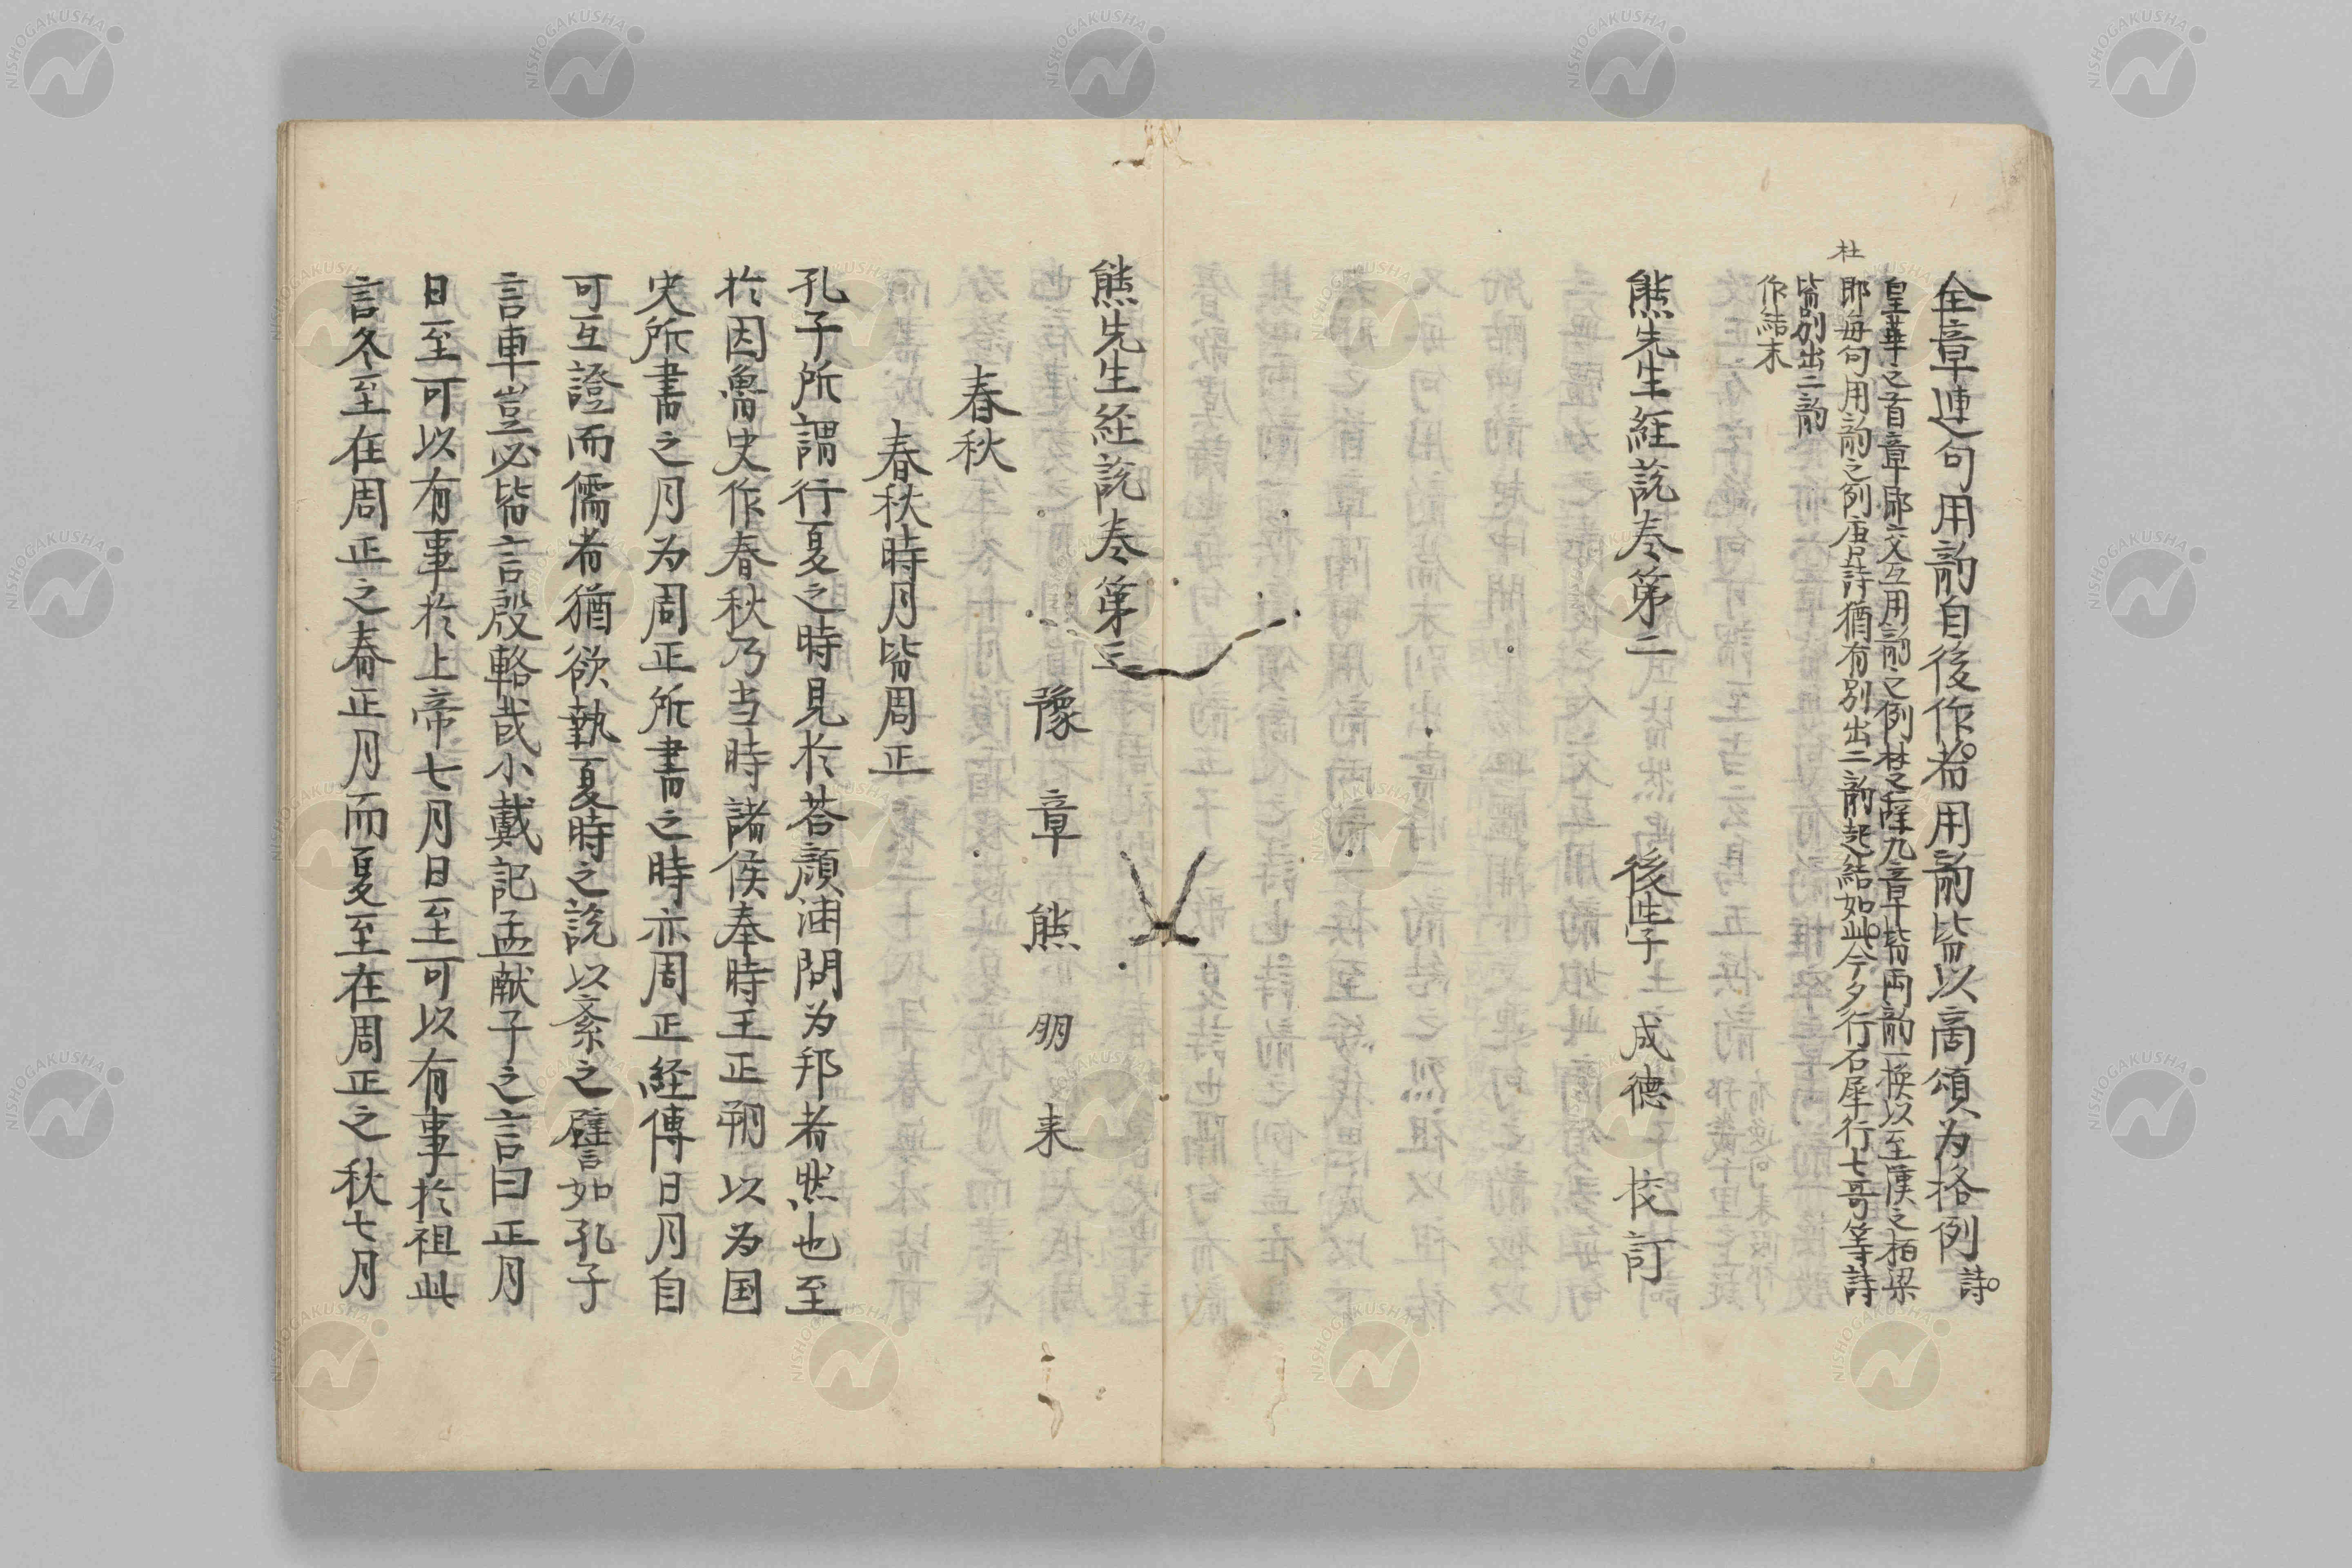 全章連句用韵自後作者用韵皆以商頌为格例詩
皇華之首章即交互用韵之例杜之薤九章皆両韵一換以至漢之栢梁
杜
即每句用韵之例唐人詩猶有別出二韵起結如此今夕行石犀行七哥等詩
皆別出二韵
作結末
熊先生経説巻第二　後學　成德　校訂
熊先生経説巻第三
豫章熊朋来
春秋
春秋時月皆周正
孔子所謂行夏之時見於荅顔淵問为邦者然也至
於因魯史作春秋乃当時諸侯奉時王正朔以为国
史所書之月为周正所書之時亦周正経傳日月自
可互證而儒者猶欲執夏時之説以紊之譬如孔子
言車豈必皆言殷輅哉小戴記孟献子之言曰正月
日至可以有事於上帝七月日至可以有事於祖此
言冬至在周正之春正月而夏至在周正之秋七月
NISHOGAKUSHA